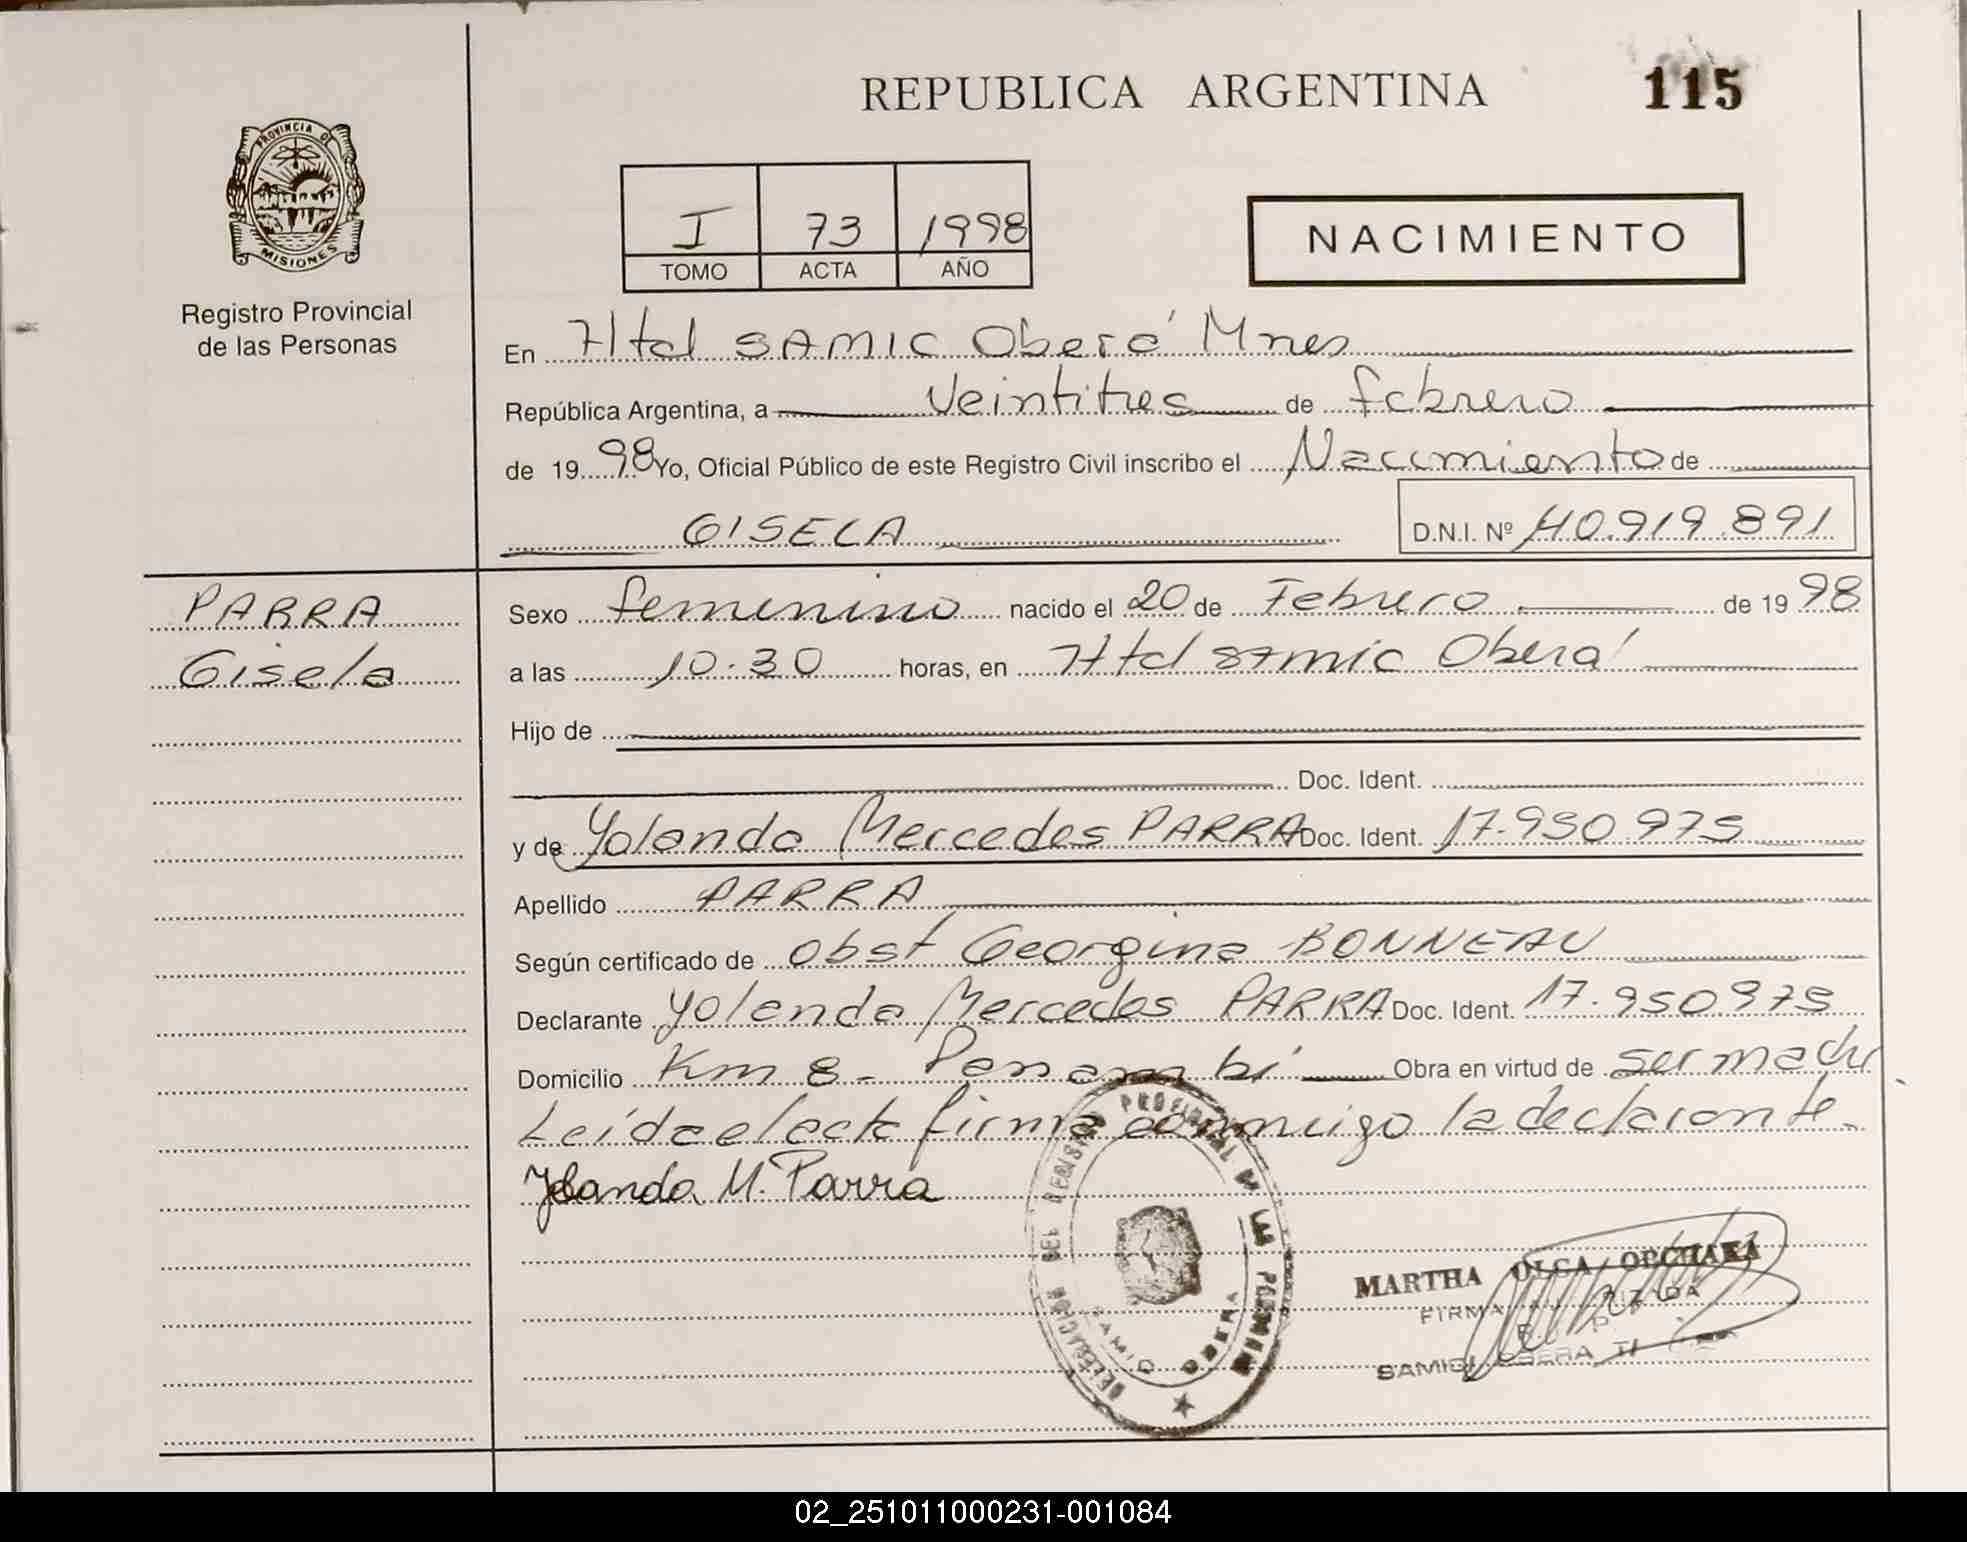 REPUBLICA ARGENTINA
115
PROVINCIA DE
MISIONES
Registro Provincial
de las Personas
I 73 1998
TOMO ACTA AÑO
NACIMIENTO
En Htal SAMIC Oberá Mnes
República Argentina, a Veintitres de febrero
de 1998 Yo, Oficial Público de este Registro Civil inscribo el Nacimiento de
GISELA
D.N.I. Nº 40.919.891
PARRA
Gisela
Sexo femenino nacido el 20 de Febrero de 1998
a las 10.30 horas, en Htal samic Oberá
Hijo de
Doc. Ident.
y de Yolanda Mercedes PARRA Doc. Ident. 17.950.975
Apellido PARRA
Según certificado de Obst Georgina BONNEAU
Declarante Yolanda Mercedes PARRA Doc. Ident. 17.950975
Domicilio Km 8 - Panambí Obra en virtud de ser madre
Leída el acta firma conmigo la declarante.
Yolanda M. Parra
DELEGACION DEL REGISTRO PROVINCIAL DE LAS
SAMIC OBERA
MARTHA OLGA
FIRMA AUTORIZADA
SAMIC OBERA
02_251011000231-001084